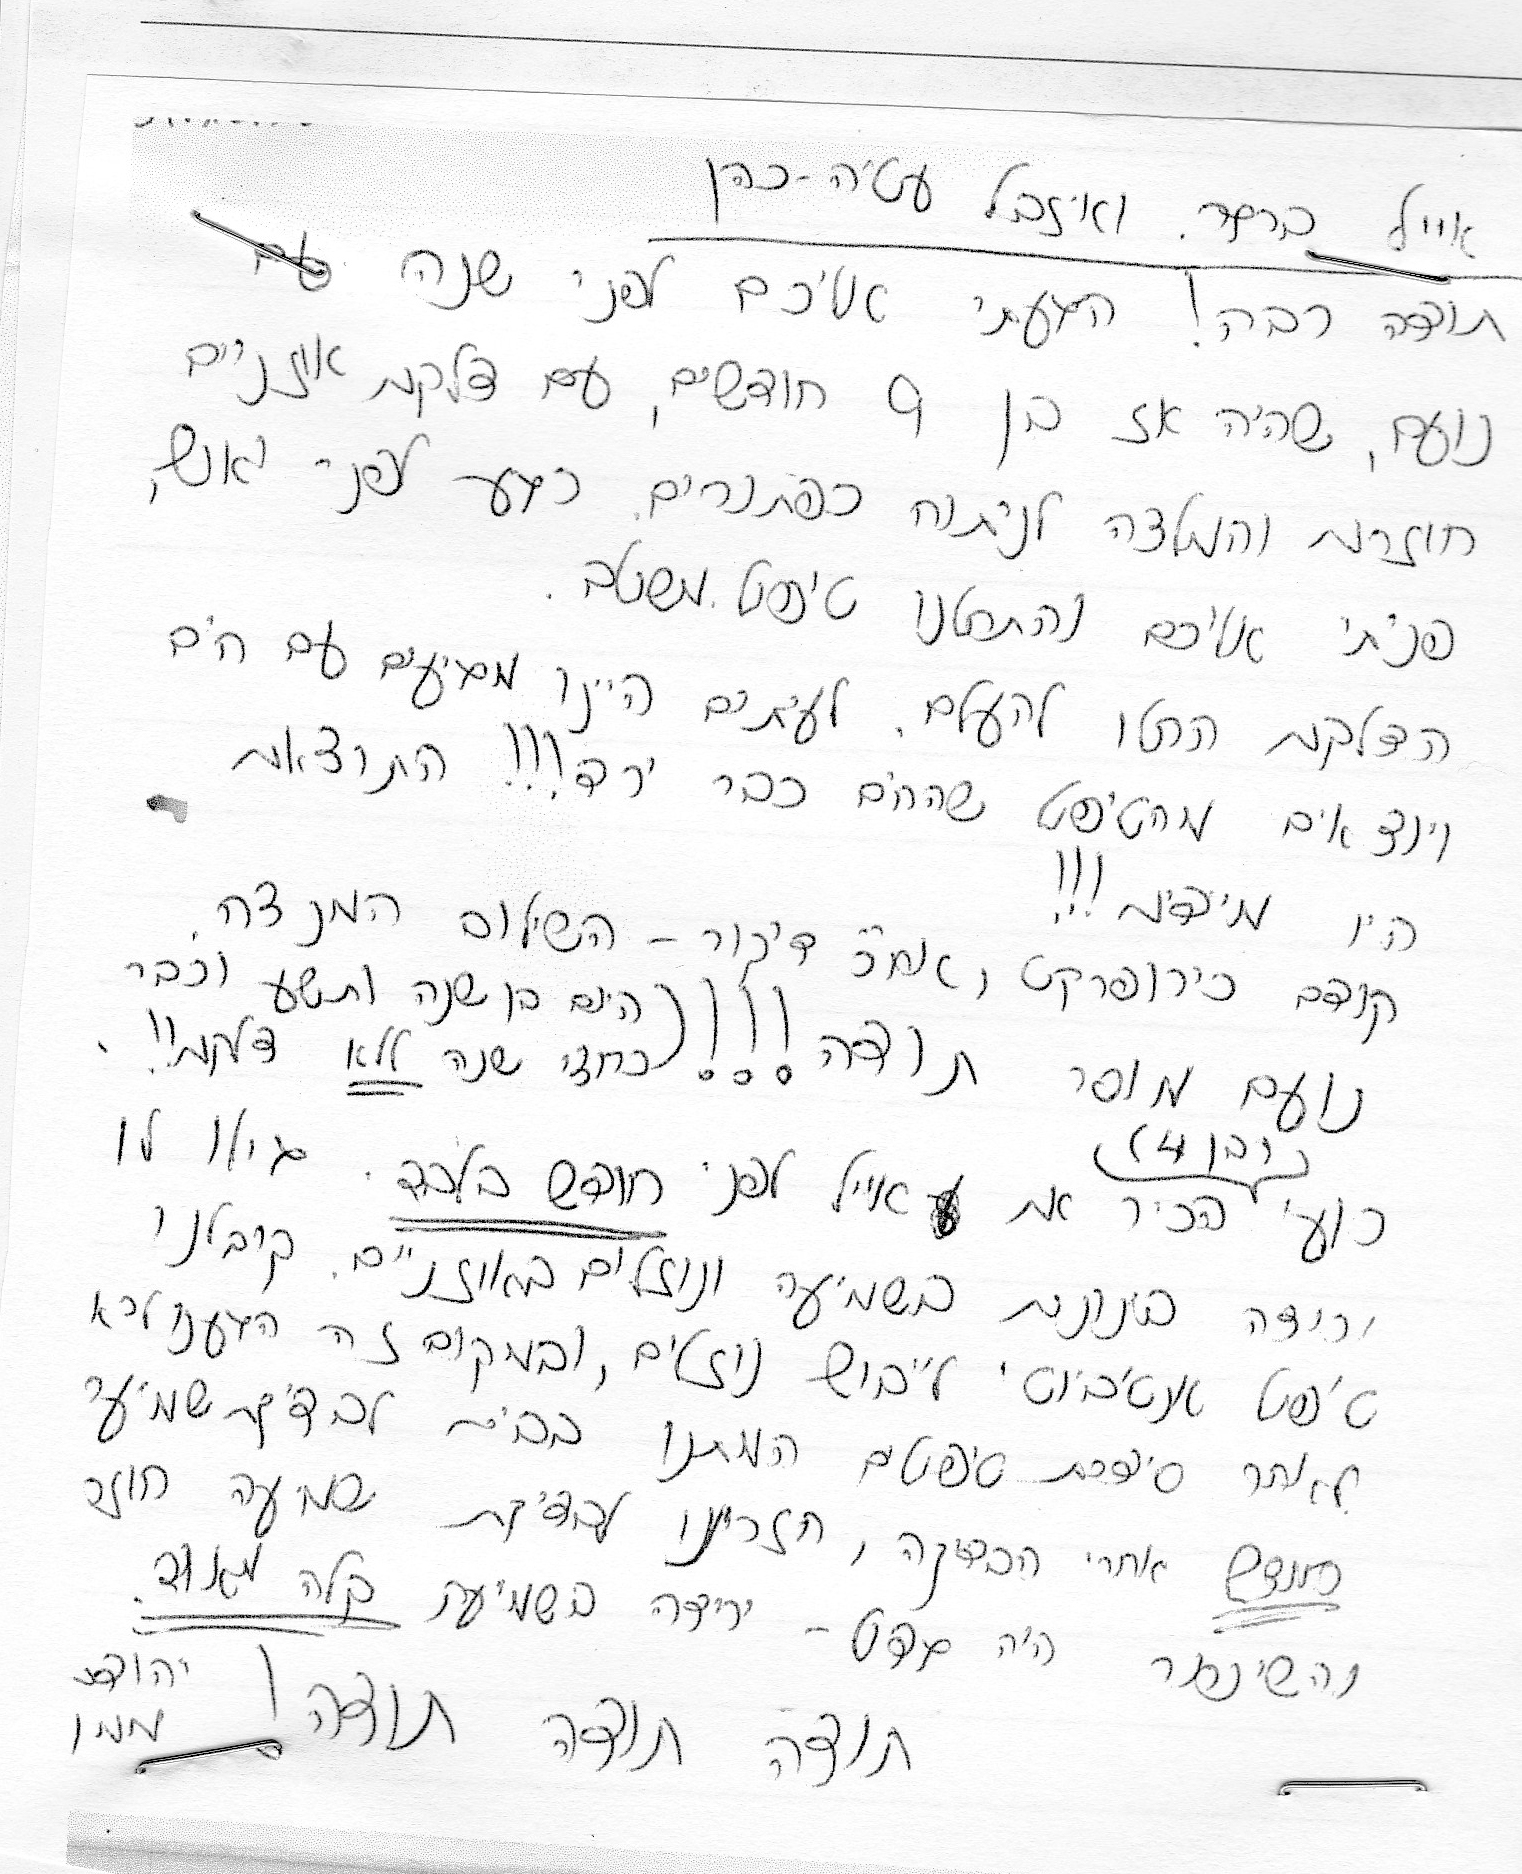 אייל ברקר. ואיזבל עטיה-כהן
תודה רבה! הגעתי אליכם לפני שנה עם
נועם, שהיה אז בן 9 חודשים, עם דלקת אוזניים
חוזרות והמלצה לניתוח כפתורים. רגע לפני יאוש,
פניתי אליכם והתחלנו טיפול משולב.
הדלקות החלו להעלם. לעיתים היינו מגיעים עם חום
ויוצאים מהטיפול שהחום כבר ירד!!! התוצאות
היו מידיות!!!
קודם כירופרקט, ואח"כ דיקור - השילוב המנצח.
נועם מוסר תודה!!! (היום בן שנה ותשע וכבר
כחצי שנה ללא דלקות!!
רועי (בן 4) הכיר את אייל לפני חודש בלבד. גילו לו
ירידה בינונית בשמיעה ונוזלים באוזניים. קיבלנו
טיפול אנטיביוטי לייבוש נוזלים, ובמקום זה הגענו לכא
לאחר סידרת טיפולים המתנו בבית לבדיקת שמיעה
כחודש אחרי הבדיקה, חזרנו לבדיקת שמיעה חוזר
והשיפור היה בולט - ירידה בשמיעה קלה מאוד.
תודה תודה תודה! יהודית
ממן